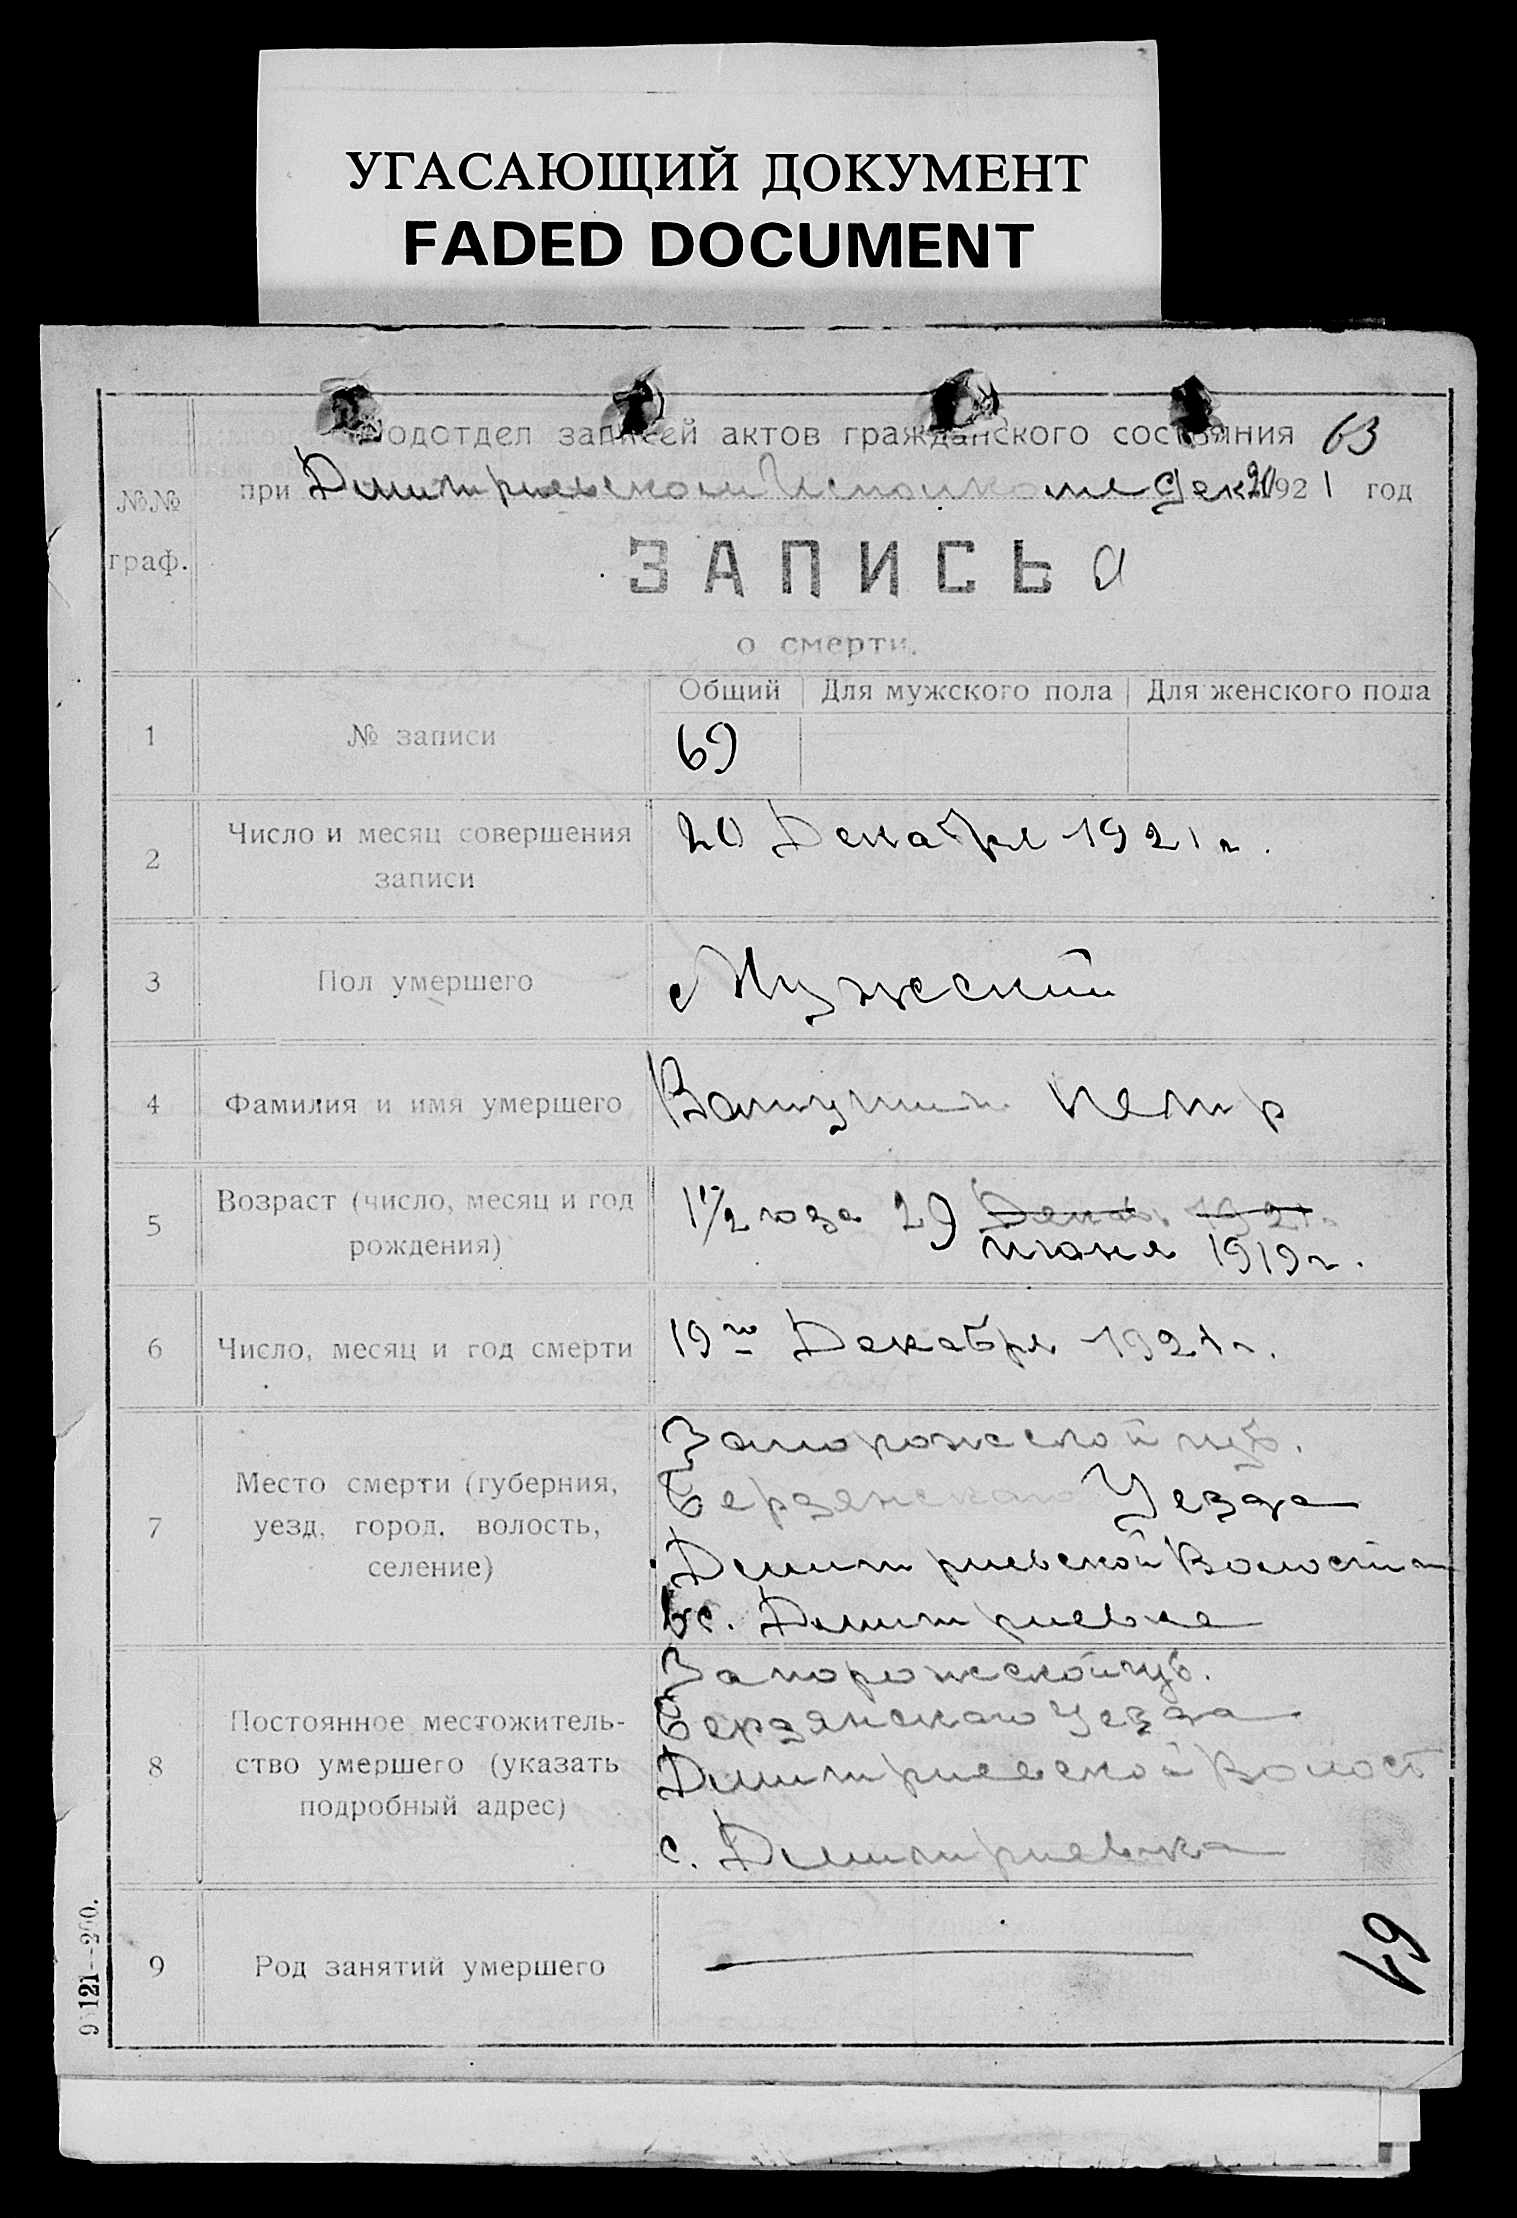 УГАСАЮЩИЙ ДОКУМЕНТ
FADED DOCUMENT
Подотдел записей актов гражданского состояния 63
при Димитриевском Исполкоме Дек 20 1921 год
№№
граф.
ЗАПИСЬ
о смерти.
Общий Для мужского пола Для женского пола
1 № записи 69
2 Число и месяц совершения 20 Декабря 1921 г.
записи
3 Пол умершего Мужский
4 Фамилия и имя умершего Петр
5 Возраст (число, месяц и год 1 1/2 года 29 Декаб. 1921 г.
рождения) июня 1919 г.
6 Число, месяц и год смерти 19го Декабря 1921 г.
Запорожской губ.
Место смерти (губерния, Бердянскаго Уезда
7 уезд, город, волость, Димитриевской Волости
селение) в с. Димитриевке
Запорожской губ.
Постоянное местожитель- Бердянскаго Уезда
8 ство умершего (указать Димитриевской Волост
подробный адрес) с. Димитриевка
9 Род занятий умершего
49